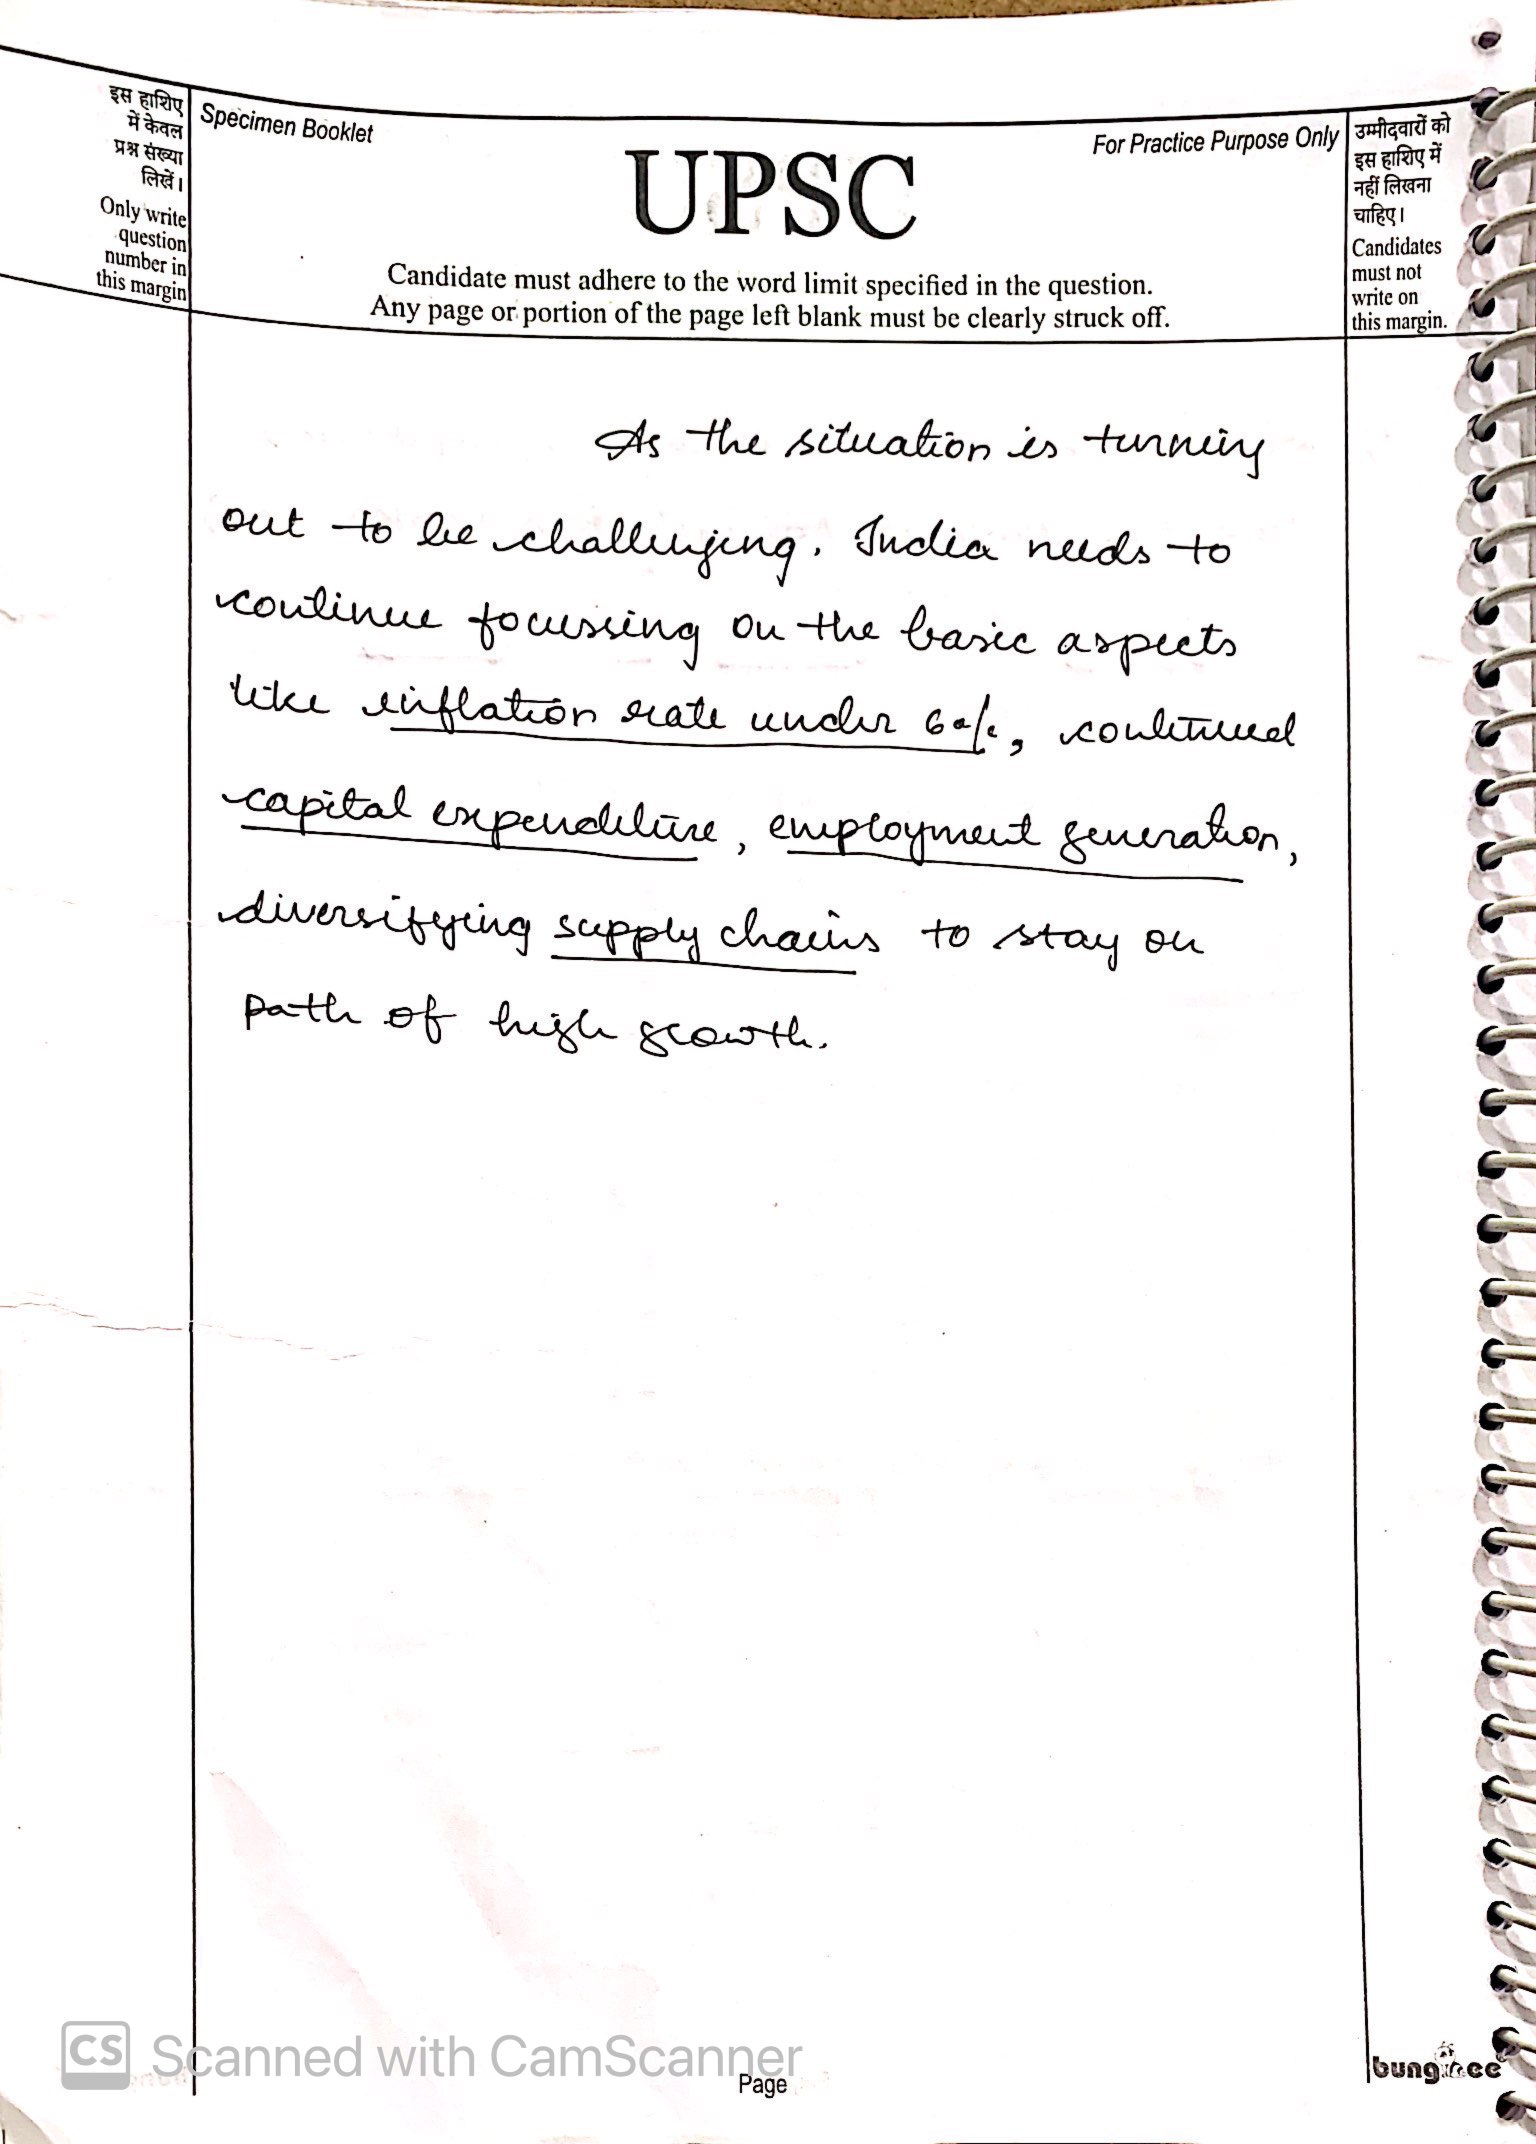 इस हाशिए
में केवल
प्रश्न संख्या
लिखें।
Only write
question
number in
this margin
Specimen Booklet
For Practice Purpose Only
UPSC
Candidate must adhere to the word limit specified in the question.
Any page or portion of the page left blank must be clearly struck off.
उम्मीदवारों को
इस हाशिए में
नहीं लिखना
चाहिए।
Candidates
must not
write on
this margin.
As the situation is turning
out to be challenging. India needs to
continue focussing on the basic aspects
like inflation rate under 6%, continued
capital expenditure, employment generation,
diversifying supply chains to stay on
path of high growth.
CS Scanned with CamScanner
Page